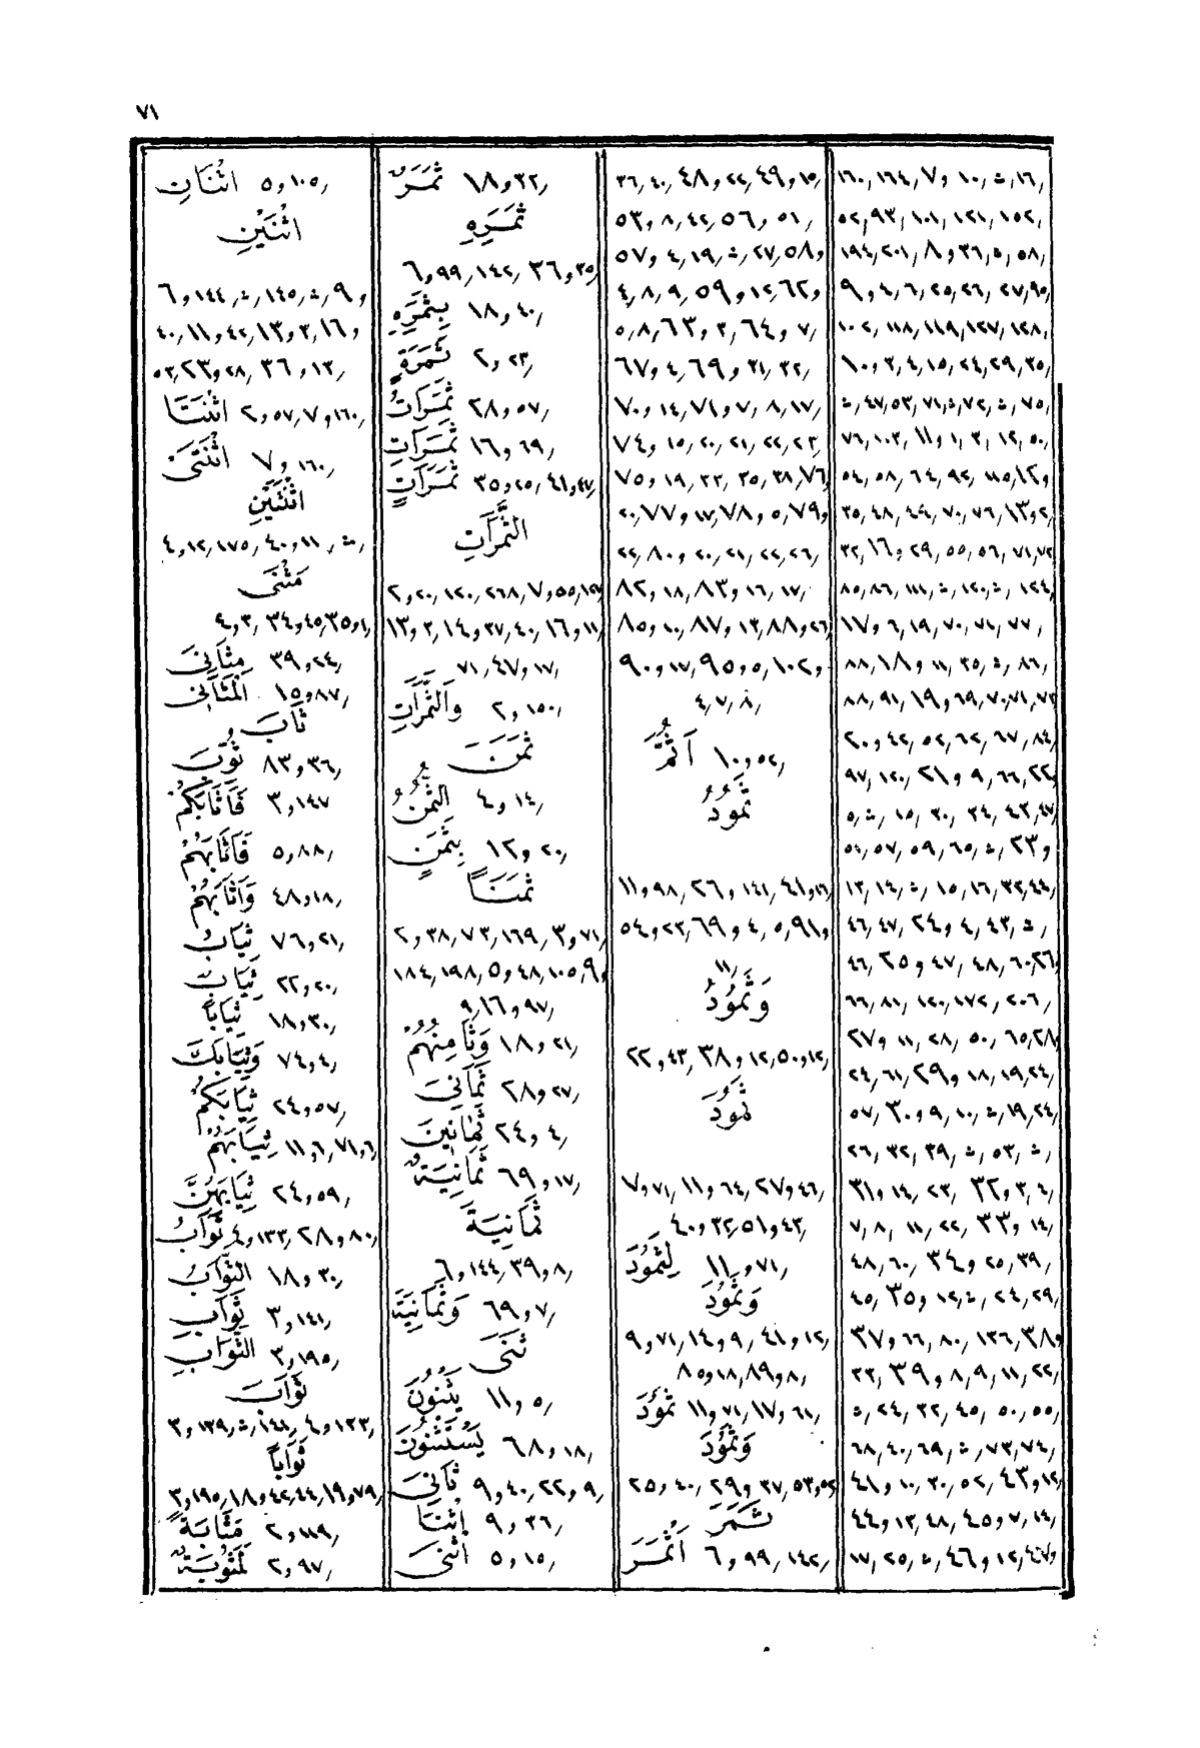 ١٦٠,١٦٤,٧و١٠,ث,١٦,
٥٢,٩٣,١٠١,١٢١,١٥٢,
١٩٤,٢٠١,٨و٣٦,ث,٥٨,
٩و٤,٦,٢٥,٢٦,٢٧,٩٥,
١٠٢,١١٨,١١٩,١٢٧,١٢٨,
١٠و٣,٤,١٥,٢٤,٢٩,٣٥,
ث,٤٧,٥٣,٧١,ث,٧٢,ث,٧٥,
٧٦,١٠٣,١١و١,٣,١٢,٥٠,
٥٤,٥٨,٦٤,٩٢,١١٥,١٢و
٣٥,٤٨,٤٩,٧٠,٧٦,١٣و٢,
٣٢,١٦و٢٩,٥٥,٥٦,٧١,٧٢,
٨٥,٨٦,١١١,ث,١٢٠,ث,١٢٤,
١٧و٦,١٩,٧٠,٧٤,٧٧,
٨٨,١٨و١١,٣٥,ث,٨٦,
٨٨,٩١,١٩و٦٩,٧٠,٧١,٧٢,
٢٠و٤٢,٥٢,٦٢,٦٧,٨٤,
٩٧,١٢٠,٢١و٩,٦٦,٢٢,
٥,ث,١٥,٣٠,٣٤,٤٣,٤٧,
٥٤,٥٧,٥٩,٦٥,ث,٢٣و
١٣,١٤,ث,١٥,١٦,٣٢,٤٤,
٤٦,٤٧,٢٤و٤,٤٣,ث,
٤٦,٢٥و٤٧,٤٨,٦٠,٢٦,
٦٦,٨٠,١٢٠,١٧٢,٢٠٦,
٢٧و١١,٢٨,٥٠,٦٥,٢٨,
٢٤,٦١,٢٩و١٨,١٩,٢٤,
٥٧,٣٠و٩,١٠,ث,١٩,٢٤,
٢٦,٣٢,٣٩,ث,٥٣,ث,
٣١و١٤,٢٣,٣٢و٣,٤,
٧,٨,١١,٢٢,٣٣و١٤,
٤٨,٦٠,٣٤و٢٥,٣٩,
٤٥,٣٥و١٢,ث,٢٤,٢٩,
٣٧و٦٦,٨٠,١٣٦,٣٨,
٣٣,٣٩و٨,٩,١١,٢٢,
ث,٢٤,٣٢,٤٥,٥٠,٥٥,
٦٨,٤٠,٦٩,ث,٧٣,٧٤,
٤١و١٠,٣٠,٥٢,٤٣و١٢,
٤٤و١٣,٤٨,٤٥و٧,١٤,
١٧,٢٥,ث,٤٦و١٢,٤٧,
٣٦,٤٠,٤٨و٢٢,٤٩و١٥,
٥٣و٨,٤٢,٥٦و٥١,
٥٧و٤,١٩,ث,٢٧,٥٨و
٤,٨,٩,٥٩و١٢,٦٢و
٥,٨,٦٣و٣,٦٤و٧,
٦٧و٤,٦٩و٣١,٣٢,
٧٠و١٤,٧١و٧,٨,١٧,
٧٤و١٥,٢٠,٢١,٢٢,٢٣,
٧٥و١٩,٣٣,٣٥,٣٨,٧٦,
٢٠,٧٧و١٧,٧٨و٥,٧٩و
٢٢,٨٠و٢٠,٢١,٢٢,٢٦,
٨٢و١٨,٨٣و١٦,١٧,
٨٥و١٠,٨٧و١٣,٨٨و٢٦,
٩٠و١٧,٩٥و٥,١٠٢و
٤,٧,٨,
أَثُمَّ ١٠و٥٢,
ثَمُودُ
١١و٩٨,٢٦و١٤١,٤١و١٦,
٥٤و٢٣,٦٩و٤,٥,٩١و
١١,
وَثَمُودُ
٢٢و٤٣,٣٨و١٢,٥٠و١٢,
ثَمُودَ
٧و٧١,١١و٦٤,٢٧و٤٦,
٤٠و٣٢,٥١و٤٣,
لِثَمُودَ ١١و٧١,
وَثَمُودَ
٩و٧١,١٤و٩,٤١و١٢,
٨٥و١٨,٨٩و٨,
ثَمُودَ ١١و٧١,١٧و٦١,
وَثَمُودَ
٢٥و٤٠,٢٩و٣٧,٥٣و٥٢
ثَمَرَ
أَثْمَرَ ٦و٩٩,١٤٢,
ثَمَرٌ ١٨و٣٢,
ثَمَرِهِ
٦و٩٩,١٤٢,٣٦و٣٥,
بِثَمَرِهِ ١٨و٤٠,
ثَمَرَةٍ ٢و٢٣,
ثَمَرَاتُ ٢٨و٥٧,
ثَمَرَاتِ ١٦و٦٩,
ثَمَرَاتٍ ٣٥و٢٥,٤١و٤٧,
الثَّمَرَاتِ
٢و٢٠,١٢٠,٢٦٨,٧و٥٥,١٢٧
١٣و٣,١٤و٣٧,٤٠,١٦و١١,
٧١,٤٧و١٧,
وَالثَّمَرَاتِ ٢و١٥٠,
ثَمَنَ
الثُّمُنُ ٤و١٤,
بِثَمَنٍ ١٢و٢٠,
ثَمَنًا
٢و٣٨,٧٣,١٦٩,٣و٧١,
١٨٤,١٩٨,٥و٤٨,١٠٥,٩و
٩,١٦و٩٧,
وَثَامِنُهُمْ ١٨و٢١,
ثَمَانِيَ ٢٨و٢٧,
ثَمَانِينَ ٢٤و٤,
ثَمَانِيَةٌ ٦٩و١٧,
ثَمَانِيَةَ
٦و١٤٤,٣٩و٨,
وَثَمَانِيَةَ ٦٩و٧,
ثَنَى
يَثْنُونَ ١١و٥,
يَسْتَثْنُونَ ٦٨و١٨,
ثَانِيَ ٩و٤٠,٢٢و٩,
اثْنَا ٩و٣٦,
اثْنَيْ ٥و١٥,
اثْنَانِ ٥و١٠٥,
اثْنَيْنِ
٦و١٤٤,ث,١٤٥,ث,٩و
٤٠,١١و٤٢,١٣و٣,١٦و
٥٢,٢٣و٢٨,٣٦و١٣,
اثْنَتَا ٢و٥٧,٧و١٦٠,
اثْنَتَيْ ٧و١٦٠,
اثْنَتَيْنِ
٤و١٢,١٧٥,٤٠و١١,ث,
مَثْنَى
٤و٣,٣٤و٤٥,٣٥و١,
مَثَانِيَ ٣٩و٢٤,
الْمَثَانِي ١٥و٨٧,
ثَابَ
ثُوِّبَ ٨٣و٣٦,
فَأَثَابَكُمْ ٣و١٤٧
فَأَثَابَهُمُ ٥و٨٨,
وَأَثَابَهُمْ ٤٨و١٨,
ثِيَابُ ٧٦و٢١,
ثِيَابٌ ٢٢و٢٠,
ثِيَابًا ١٨و٣٠,
وَثِيَابَكَ ٧٤و٤,
ثِيَابَكُمْ ٢٤و٥٧,
ثِيَابَهُمْ ١١و٦,٧١و٦
ثِيَابَهُنَّ ٢٤و٥٩,
ثَوَابُ ٤و١٣٣,٢٨و٨٠,
الثَّوَابُ ١٨و٣٠,
ثَوَابِ ٣و١٤١,
الثَّوَابِ ٣و١٩٥,
ثَوَابَ
٣و١٣٩,ث,١٤١,٤و١٣٣,
ثَوَابًا
٣و١٩٥,١٨و٤٢,٤٤,١٩و٧٩,
مَثَابَةً ٢و١١٩,
لَمَثُوبَةٌ ٢و٩٧,
٧١